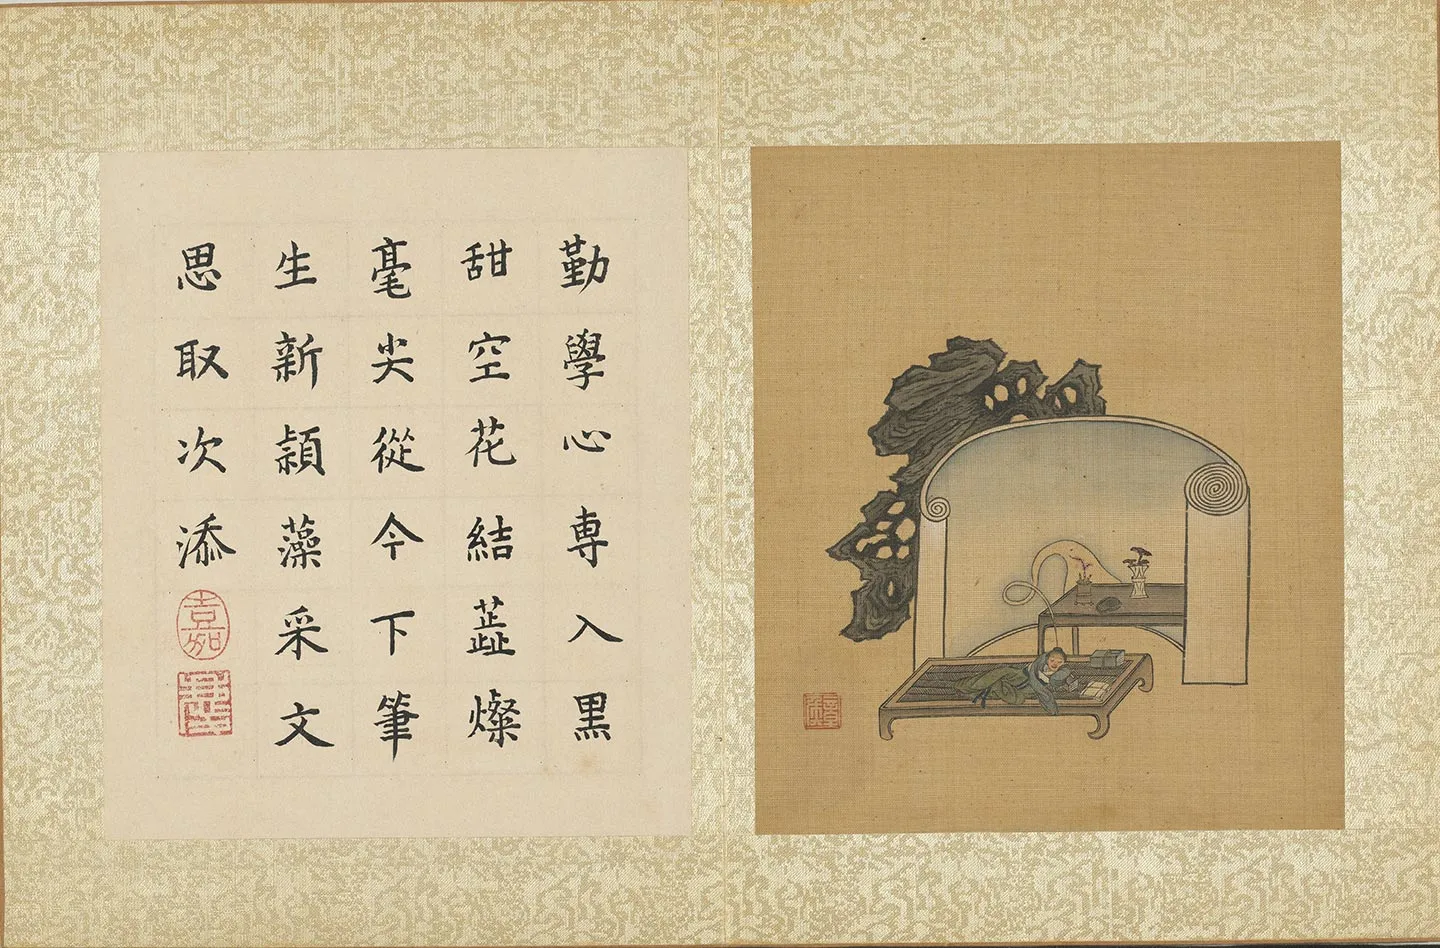 勤學心專入黑
甜空花結蕋燦
毫尖從今下筆
生新穎藻采文
思取次添
嘉